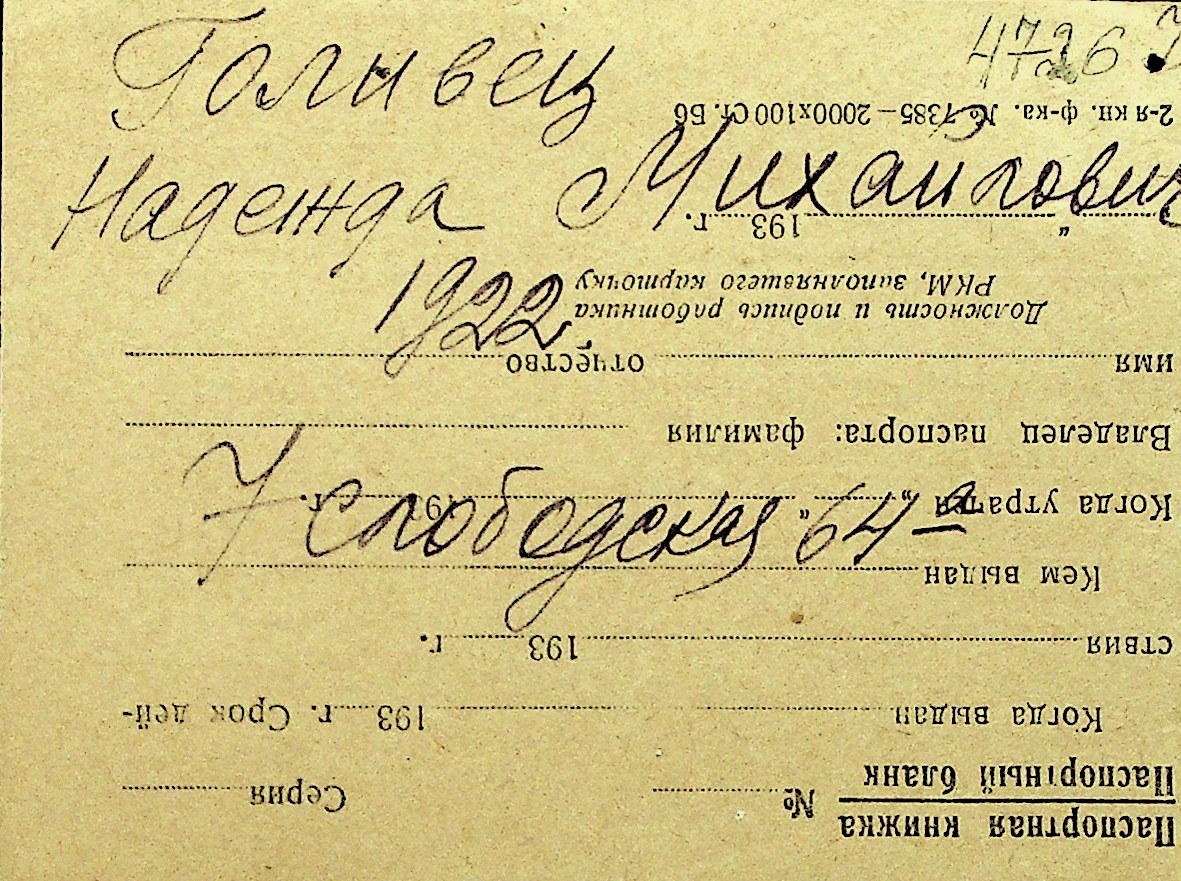 4726
Голивец
Надежда Михайлович
1922
7 Слободская 64-а
Паспортная книжка
Паспортный бланк № Серия
Когда выдан 193 г. Срок дей-
ствия 193 г.
Кем выдан
Когда утрачен " " 193 г.
Владелец паспорта: фамилия
имя отчество
Должность и подпись работника
РКМ, заполнявшего карточку
" 193 г.
2-я кн. ф-ка. № 7385—2000х100 Ст. Бб